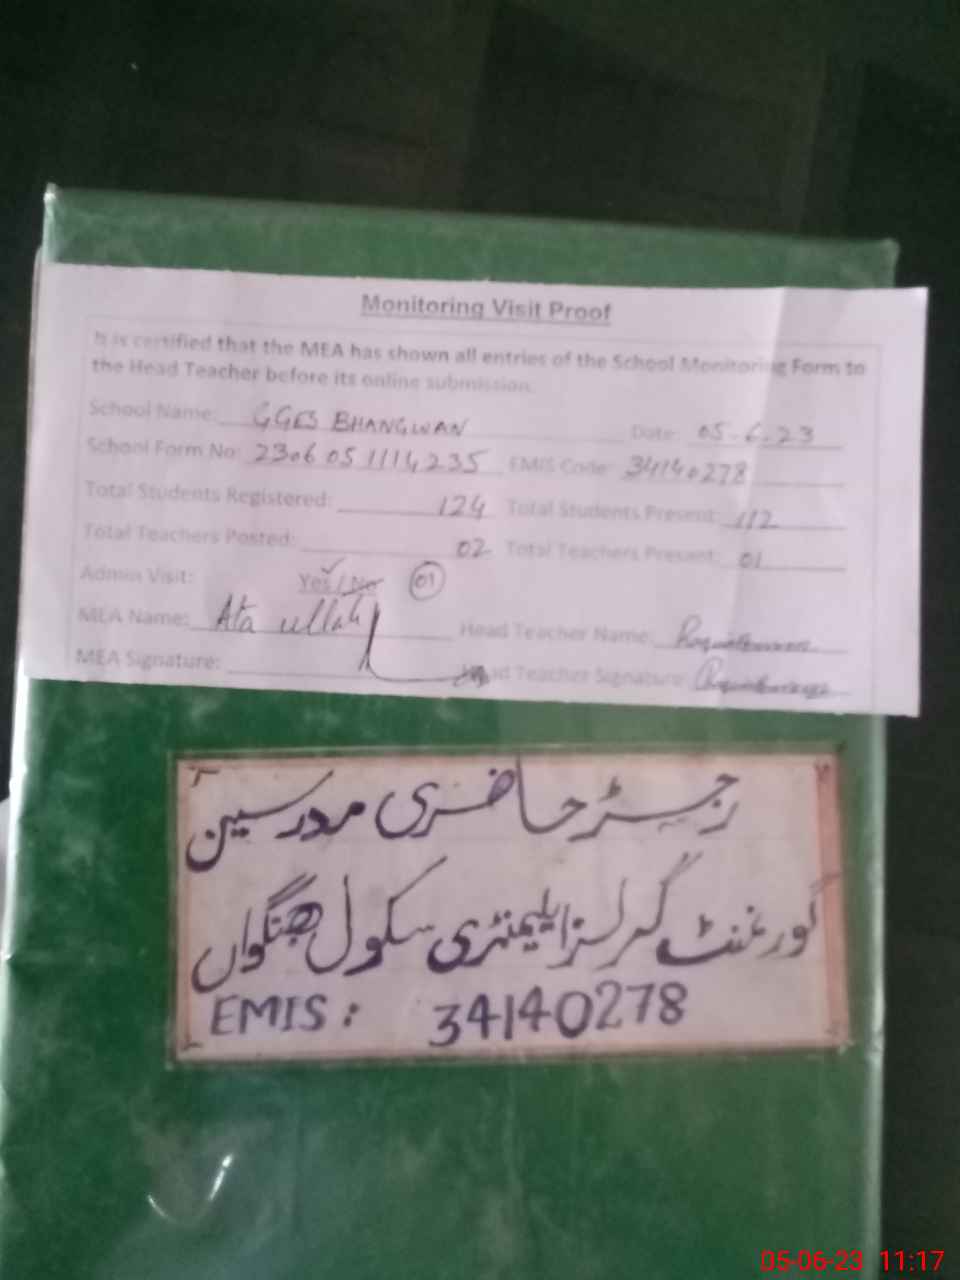 Monitoring Visit Proof
It is certified that the MEA has shown all entries of the School Monitoring Form to
the Head Teacher before its online submission.
School Name: GGES BHANGWAN Date: 05-6-23
School Form No: 2306051114235 EMIS Code: 34140278
Total Students Registered: 124 Total Students Present: 112
Total Teachers Posted: 02 Total Teachers Present: 01
Admin Visit: Yes / No 01
MEA Name: Ata ullah Head Teacher Name:
MEA Signature: Head Teacher Signature:
رجسٹر حاضری مدرسین
گورنمنٹ گرلز ایلیمنٹری سکول بھنگواں
EMIS: 34140278
05-06-23 11:17